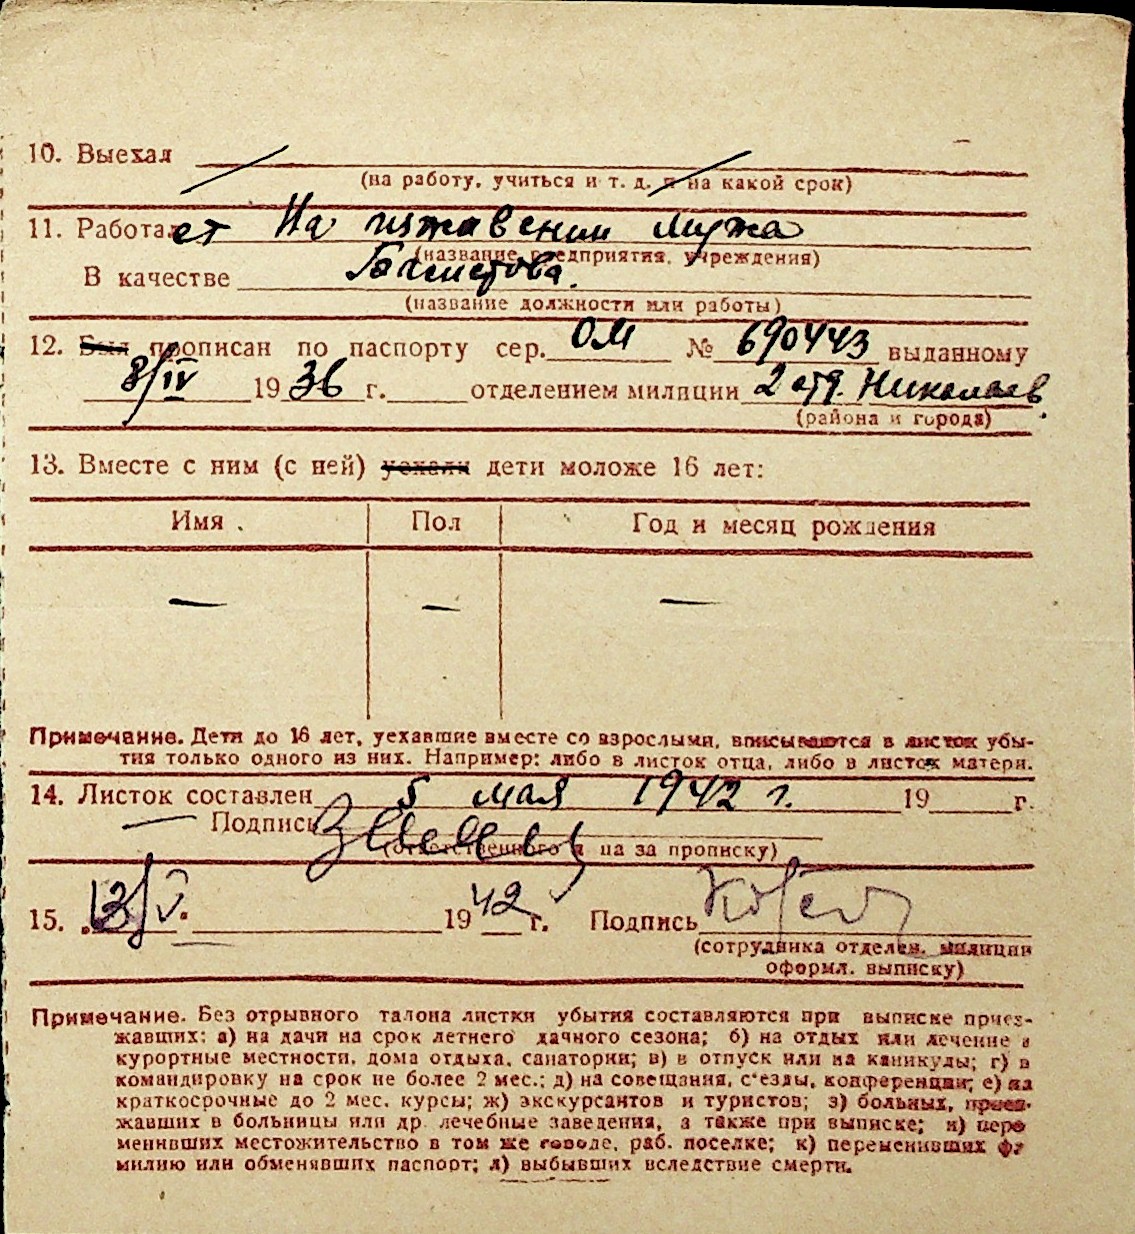 10. Выехал
(на работу, учиться и т. д. и на какой срок)
11. Работает На иждивении мужа
(название предприятия, учреждения)
В качестве
(название должности или работы)
12. Был прописан по паспорту сер. ОМ № 690443 выданному
8/IV 1936 г. отделением милиции 2 отд. Николаев
(района и города)
13. Вместе с ним (с ней) уехали дети моложе 16 лет:
Имя Пол Год и месяц рождения
— — —
Примечание. Дети до 16 лет, уехавшие вместе со взрослыми, вписываются в листок убы-
тия только одного из них. Например: либо в листок отца, либо в листок матери.
14. Листок составлен 5 мая 1942 г. 19 г.
Подпись
(ответственного на за прописку)
15. 13/V. 1942 г. Подпись
(сотрудника отделен. милиции
оформл. выписку)
Примечание. Без отрывного талона листки убытия составляются при выписке приез-
жавших: а) на дачи на срок летнего дачного сезона; б) на отдых или лечение в
курортные местности, дома отдыха, санатории; в) в отпуск или на каникулы; г) в
командировку на срок не более 2 мес.; д) на совещания, с'езды, конференции; е) на
краткосрочные до 2 мес. курсы; ж) экскурсантов и туристов; з) больных, приез-
жавших в больницы или др. лечебные заведения, а также при выписке; и) пере
менивших местожительство в том же городе, раб. поселке; к) переменивших фа
милию или обменявших паспорт; л) выбывших вследствие смерти.